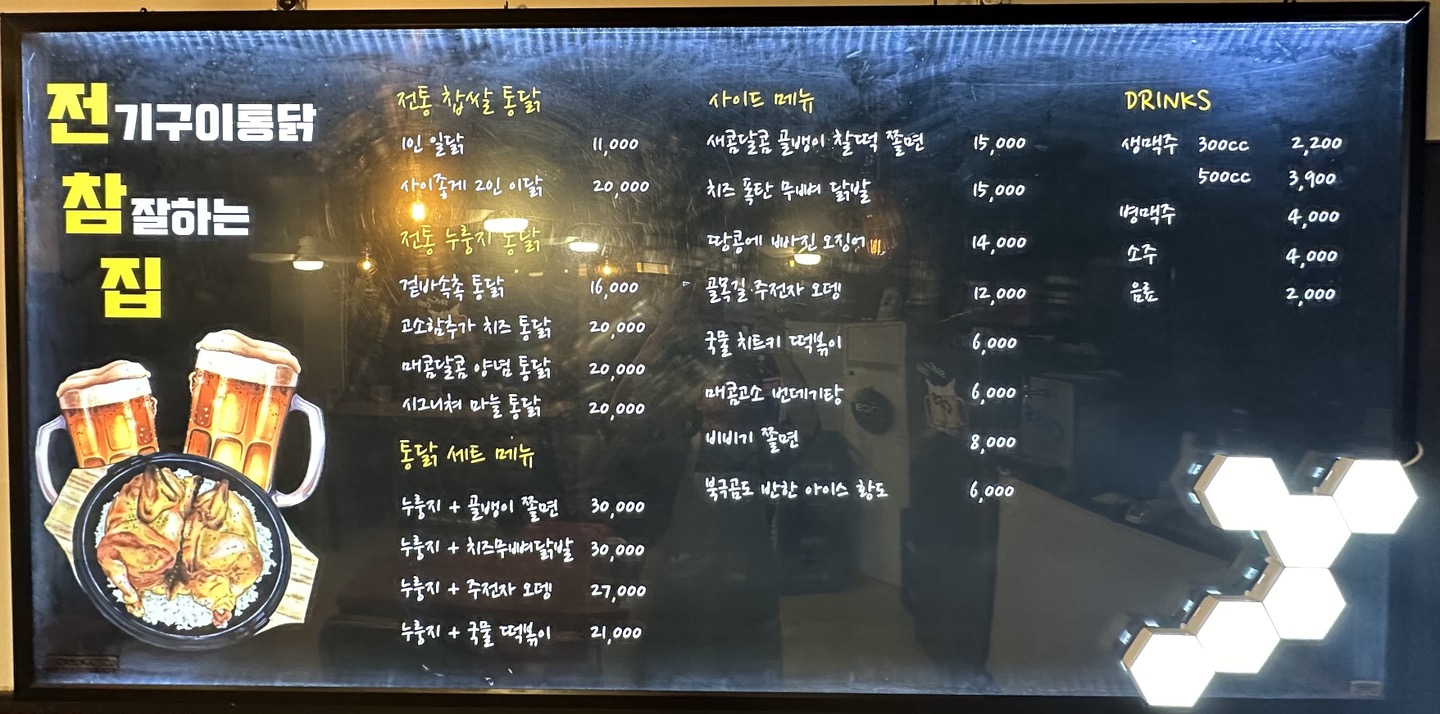 전기구이통닭
참잘하는
집
전통 찹쌀 통닭
1인 일닭 11,000
사이좋게 2인 이닭 20,000
전통 누룽지 통닭
겉바속촉 통닭 16,000
고소함추가 치즈 통닭 20,000
매콤달콤 양념 통닭 20,000
시그니쳐 마늘 통닭 20,000
통닭 세트 메뉴
누룽지 + 골뱅이 쫄면 30,000
누룽지 + 치즈무뼈닭발 30,000
누룽지 + 주전자 오뎅 27,000
누룽지 + 국물 떡볶이 21,000
사이드 메뉴
새콤달콤 골뱅이·찰떡 쫄면 15,000
치즈 폭탄 무뼈 닭발 15,000
땅콩에 빠진 오징어 14,000
골목길·주전자 오뎅 12,000
국물 치트키 떡볶이 6,000
매콤고소 번데기탕 6,000
비비기 쫄면 8,000
북극곰도 반한 아이스 황도 6,000
DRINKS
생맥주 300cc 2,200
500cc 3,900
병맥주 4,000
소주 4,000
음료 2,000